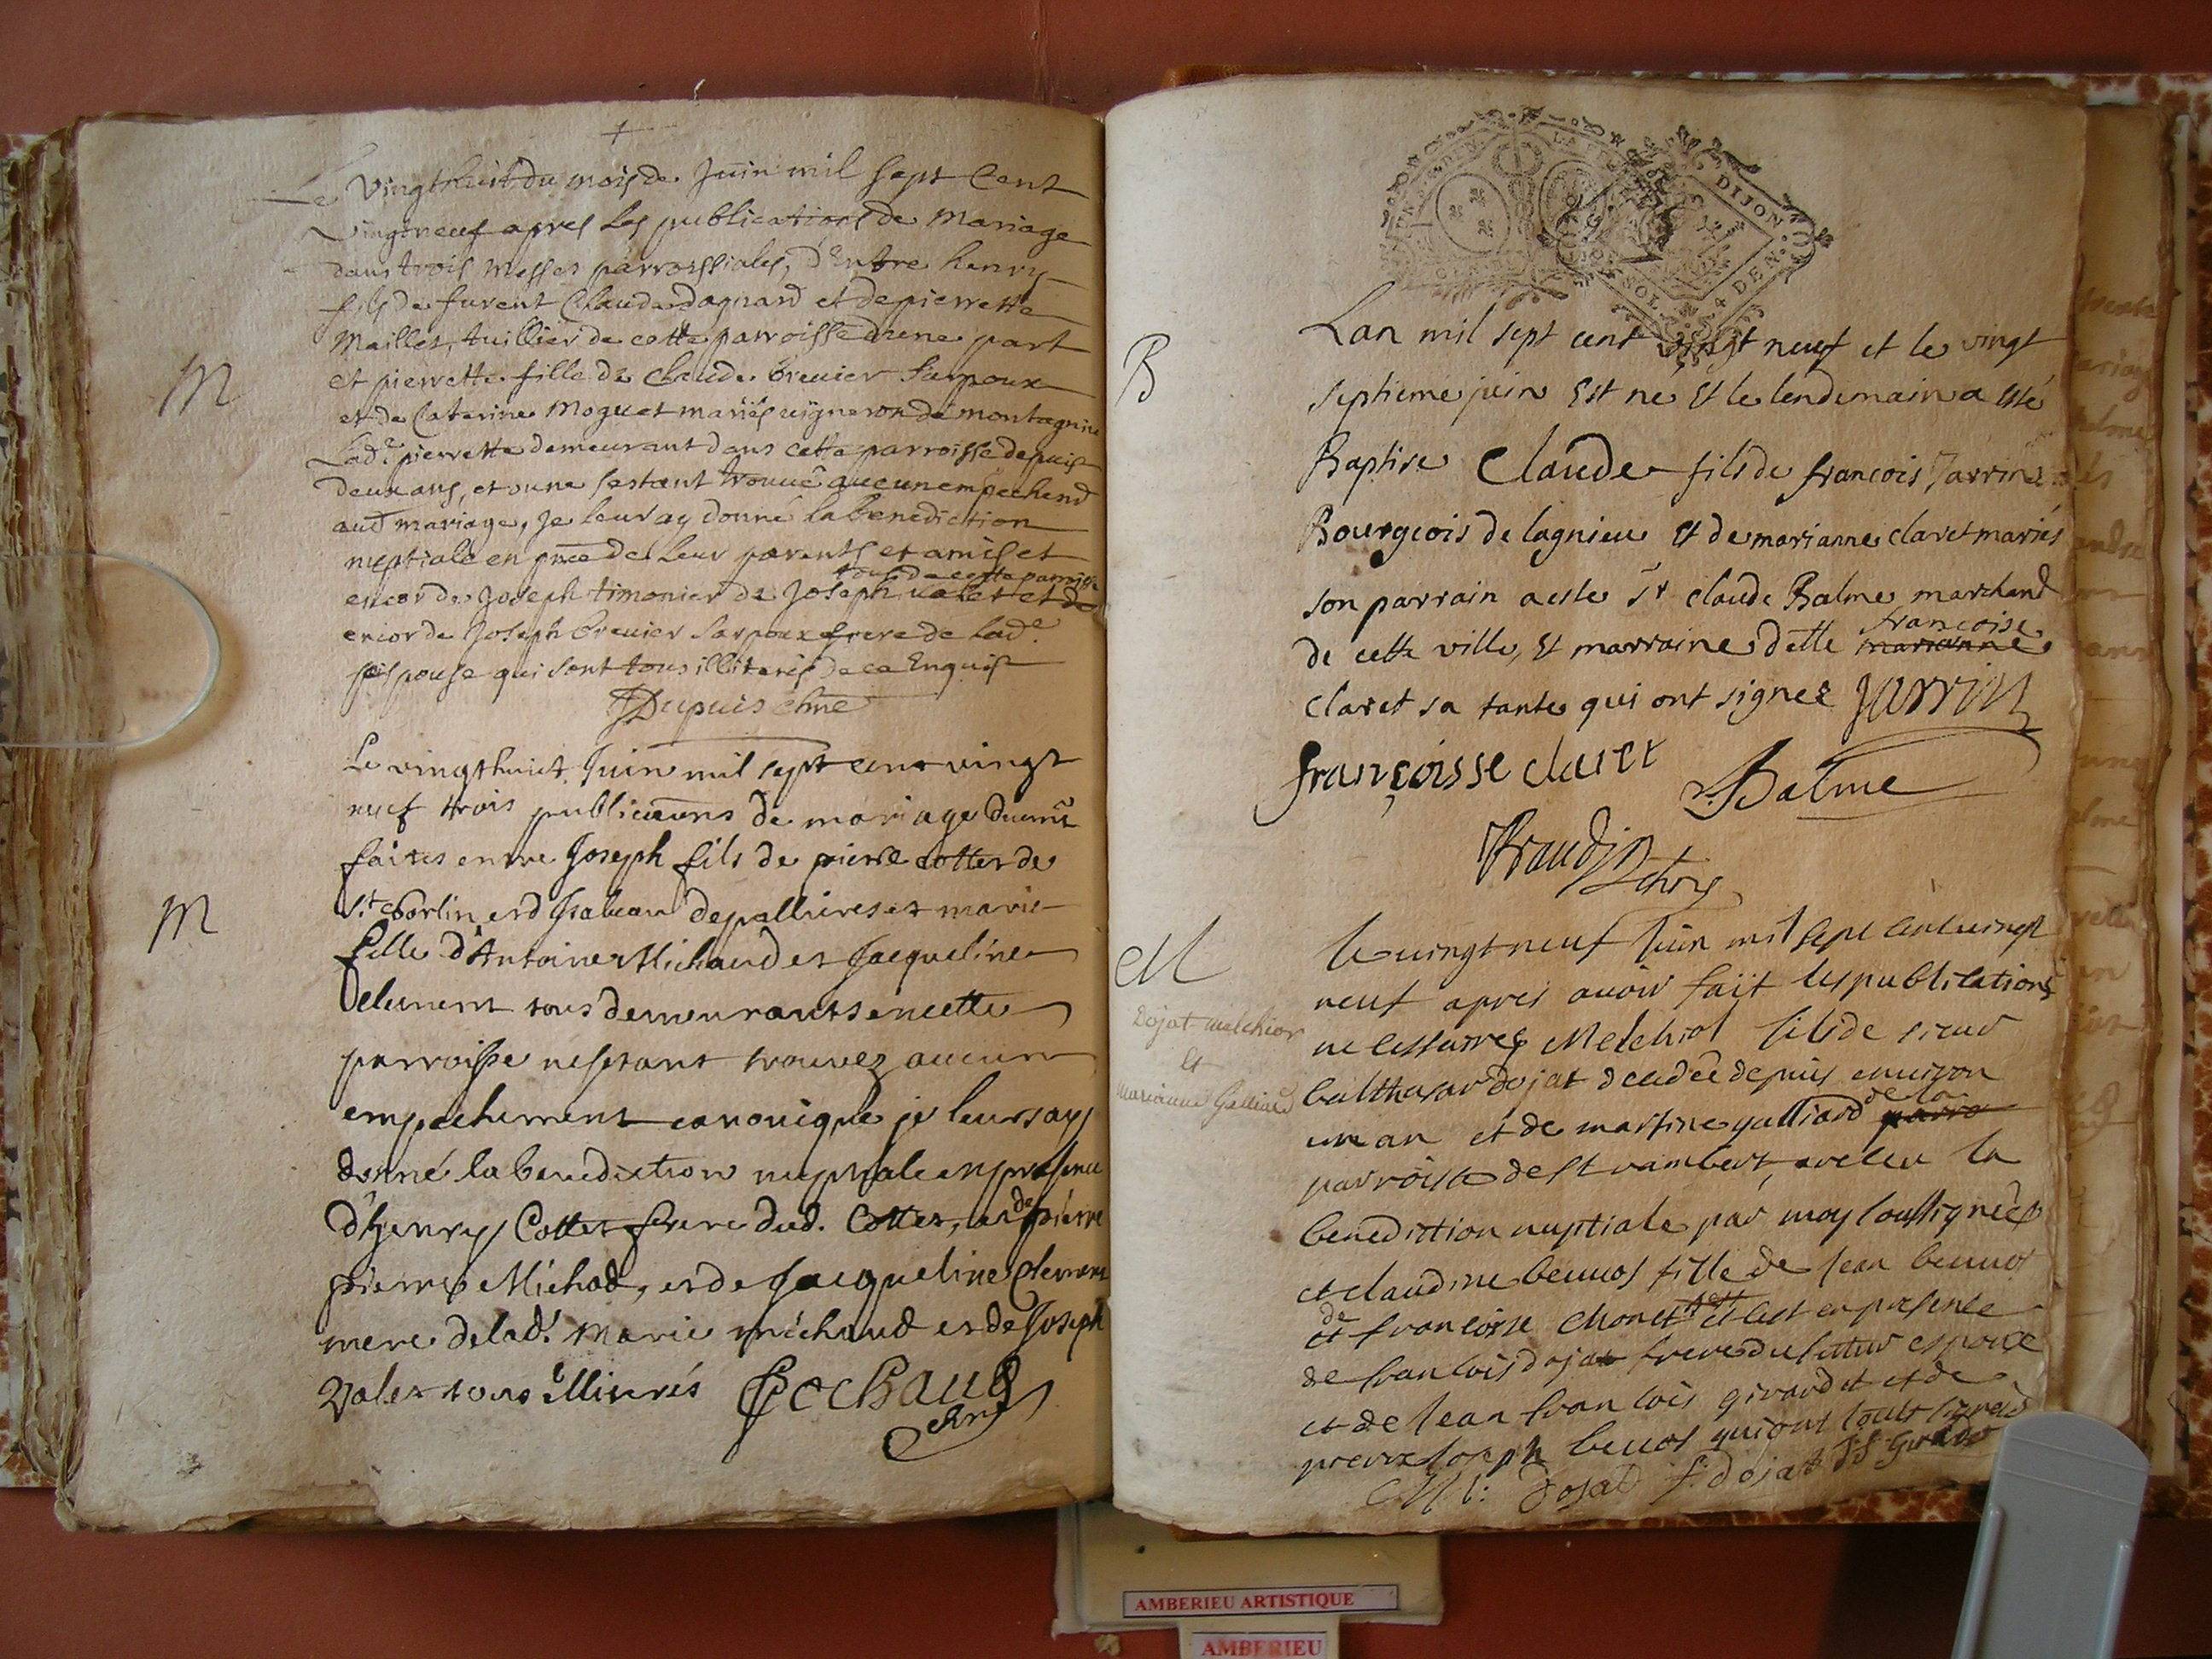 Le vingthuit du mois de Juin mil sept Cent
vingtneuf apres les publications de Mariage
dans trois Messes parroissiales, d'Entre henry
fils de furent Claude dagnard et de pierrette
Maillet, tuillier de cette parroisse d'une part
M
et pierrette fille de Claude breuier Sarpoux
et de Caterine Moguet mariés vigneron de montagnieu
Lad.e pierrette demeurant dans cette parroisse depuis
deux ans, et ou ne sestant trouué aucun empechend
aud mariage, Je leur ay donné la benediction
nuptiale en pnce de leur parents et amis et
tous de cette parroisse
encor de Joseph timonier de Joseph valet et de
encor de Joseph breuier Sarpoux frere de lad.e
espouse qui sont tous illiteres de ce Enquis
Dupuis chne
Le vingthuict Juin mil sept cent vingt
neuf trois publicaons de mariage duemt
faites entre Joseph fils de pierre cottet de
M
St sorlin et d'Isabeau depallieres et marie
fille d'Antoine Michaud et Jacqueline
Clement tous demeurants en cette
parroisse nestant trouvez aucun
empechement canonique je leurs ay
donné la benediction nuptiale en presence
d'henry Cottet frere dud. Cottet, et de pierre
pierre Michod, et de Jacqueline Clement
mere de lad. Marie michaud et de Joseph
Valet tous illiterés Cochaud
chne
LA FEUILLE
DIJON
SOL
4 DEN.
Lan mil sept cent vingt neuf et le vingt
B
septieme juin Est né Et le lendemain a esté
Baptise Claude fils de francois Jarrin
Bourgeois de lagnieu Et de marianne claret mariés
son parrain a este Sr claude Balme marchand
francoise
de cette ville, Et marraine delle marianne
claret sa tante qui ont signez Jarrin
françoisse claret
Balme
Braudin
le uingt neuf Juin mil sept cent uingt
M
neuf apres auoir fait les publications
Dojat Melchior
necessaires Melchiol fils de sieur
et
balthasar dojat decedée depuis enuiron
marianne Galliard
de la
un an et de martine galliard parro
parroisse de st rambert, a receu la
benediction nuptiale par moy soussignéé
et claudine beuuos fille de Jean beuuos
de
et francoise Monet et c'est en presence
de francois dojat frere du futur espoux
et de Jean francois girardet et de
pierre Joseph beuos qui ont tous signéé
M: Dojat f. dojat J f Girardet
AMBERIEU ARTISTIQUE
AMBERIEU